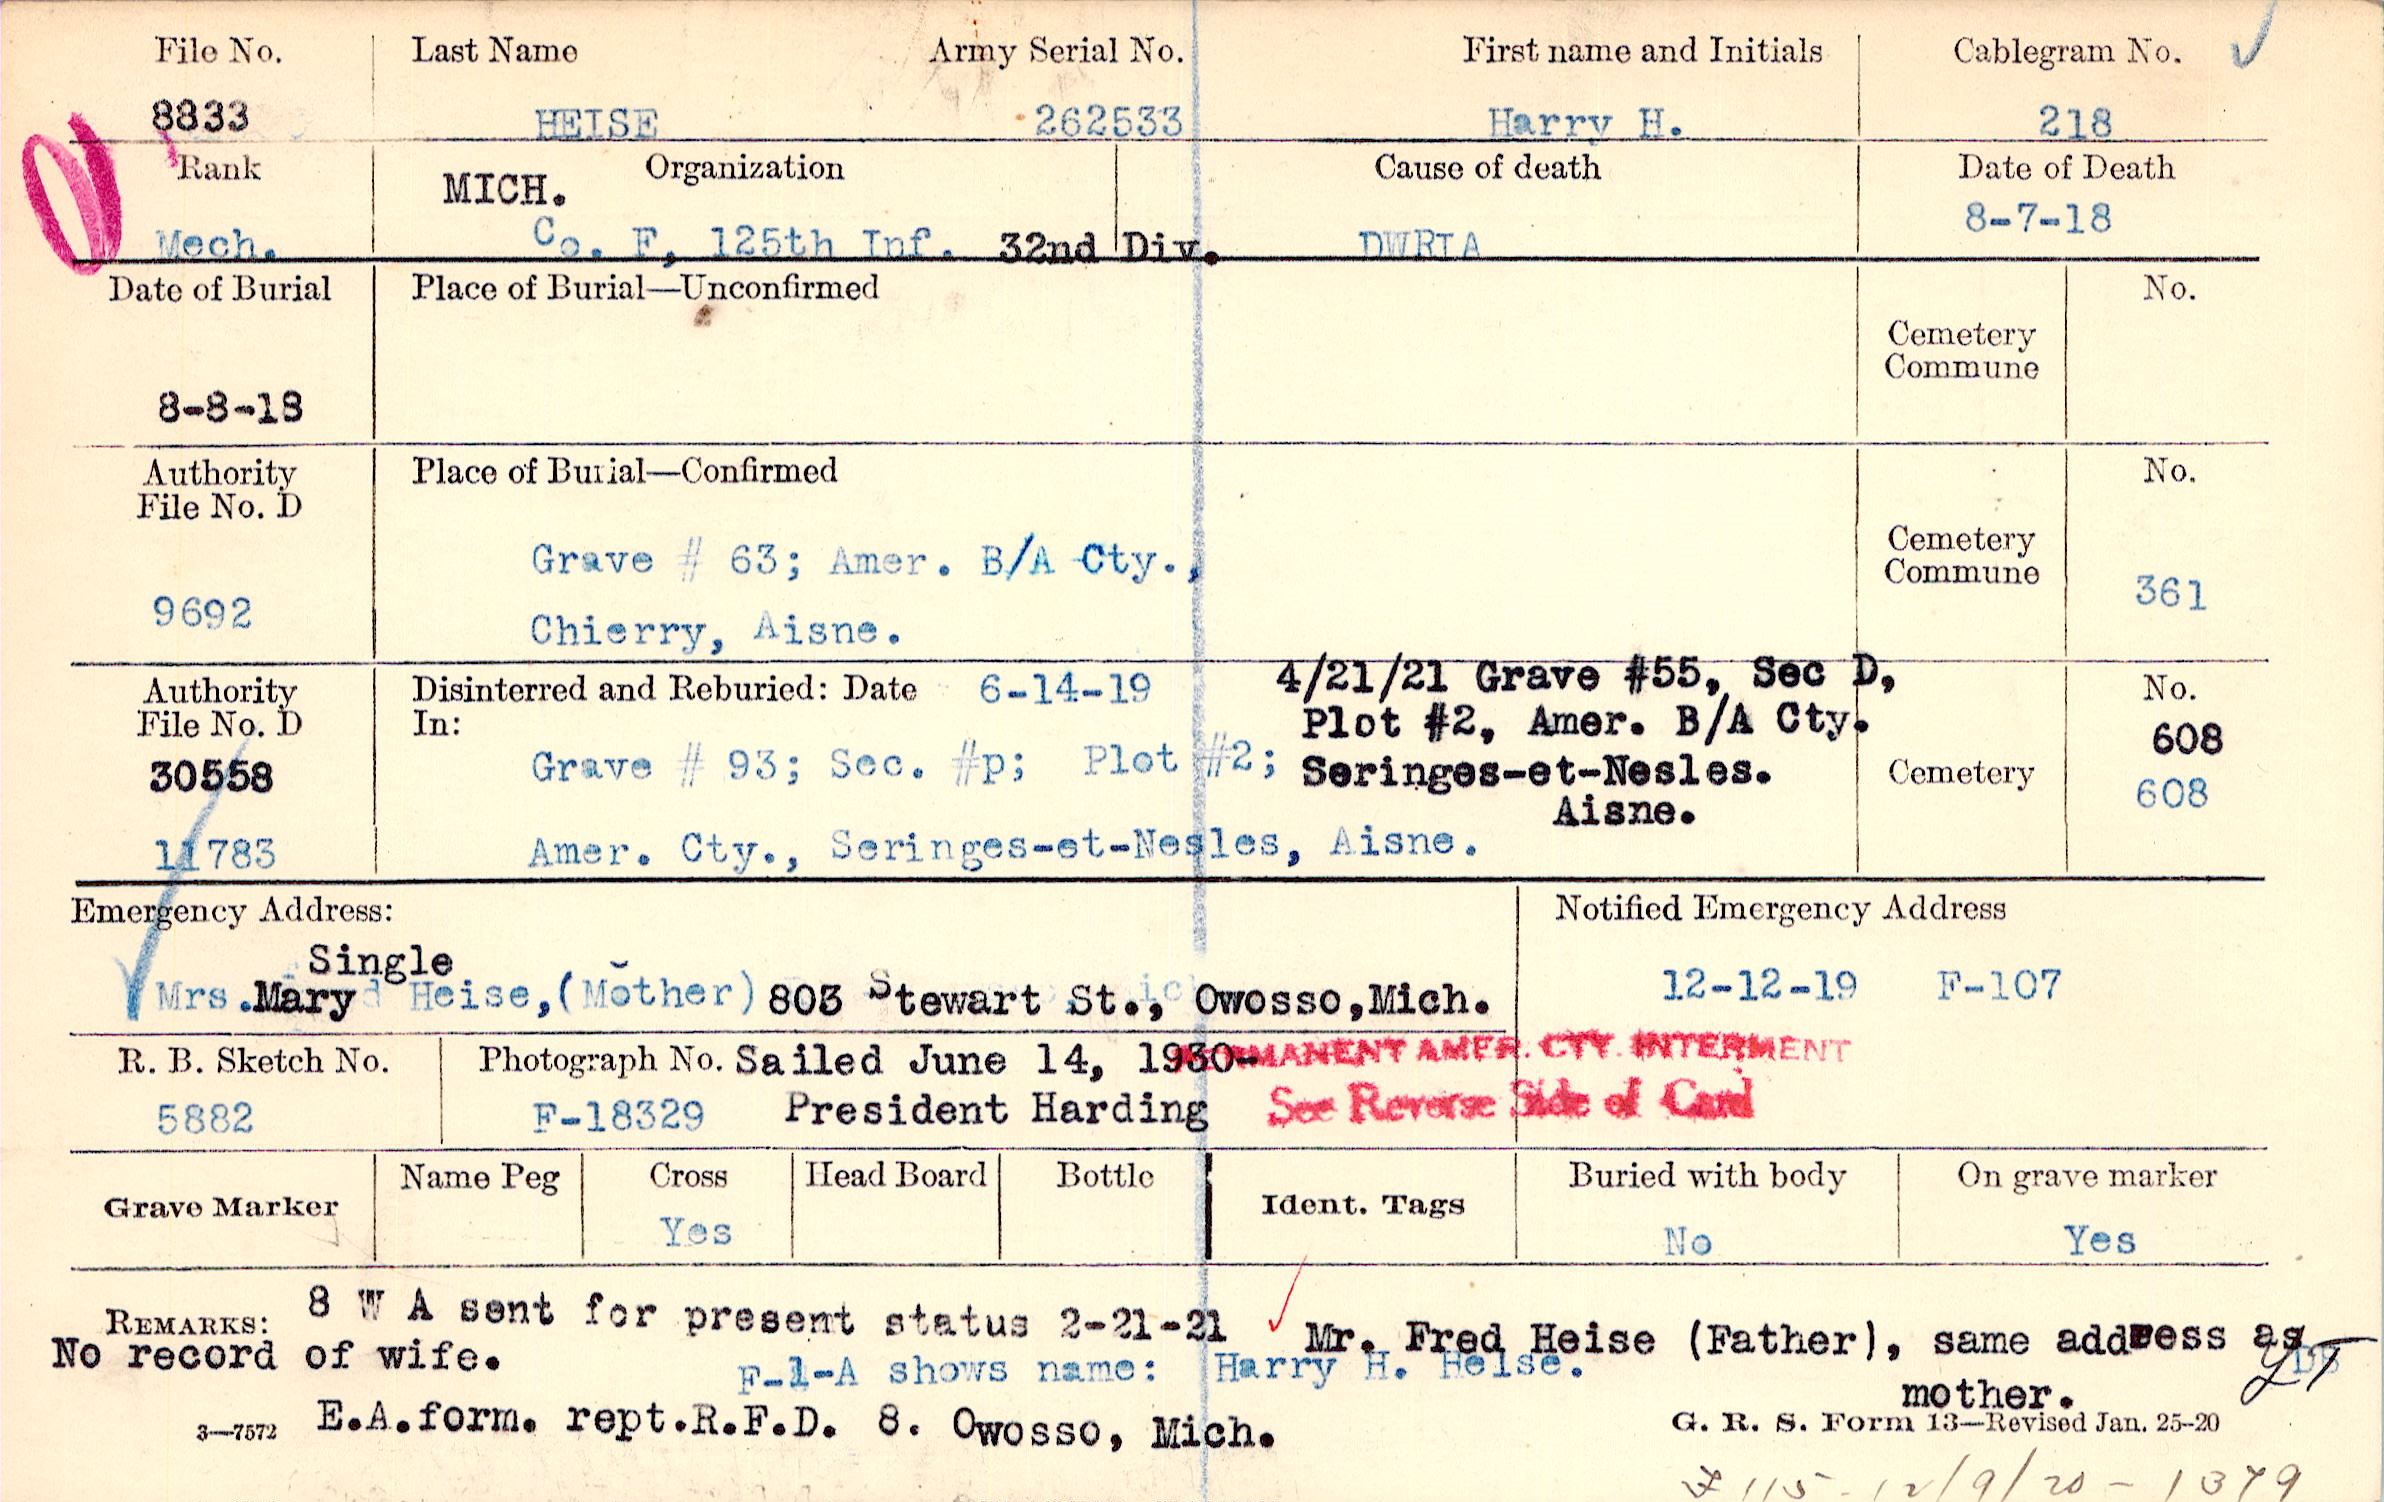 File No. Last Name Army Serial No. First name and Initials Cablegram No.
8833 HEISE 262533 Harry H. 218
Rank Organization Cause of death Date of Death
MICH.
Mech. Co. F, 125th Inf. 32nd Div. DWRIA 8-7-18
Date of Burial Place of Burial—Unconfirmed No.
Cemetery
Commune
8-8-18
Authority Place of Burial—Confirmed No.
File No. D
Grave # 63; Amer. B/A Cty., Cemetery
Commune 361
9692 Chierry, Aisne.
Authority Disinterred and Reburied: Date 6-14-19 4/21/21 Grave #55, Sec D, No.
File No. D In: Plot #2, Amer. B/A Cty. 608
30558 Grave # 93; Sec. #p; Plot #2; Seringes-et-Nesles. Cemetery 608
Aisne.
11783 Amer. Cty., Seringes-et-Nesles, Aisne.
Emergency Address: Notified Emergency Address
Single
Mrs. Mary Heise, (Mother) 803 Stewart St., Owosso, Mich. 12-12-19 F-107
R. B. Sketch No. Photograph No. Sailed June 14, 1930- PERMANENT AMER. CTY. INTERMENT
5882 F-18329 President Harding See Reverse Side of Card
Grave Marker Name Peg Cross Head Board Bottle Ident. Tags Buried with body On grave marker
Yes No Yes
REMARKS: 8 W A sent for present status 2-21-21 Mr. Fred Heise (Father), same address as
No record of wife. F-1-A shows name: Harry H. Heise. DB
mother.
3—7572 E.A.form. rept.R.F.D. 8. Owosso, Mich. G. R. S. Form 13—Revised Jan. 25-20
115- 12/9/20 - 1379